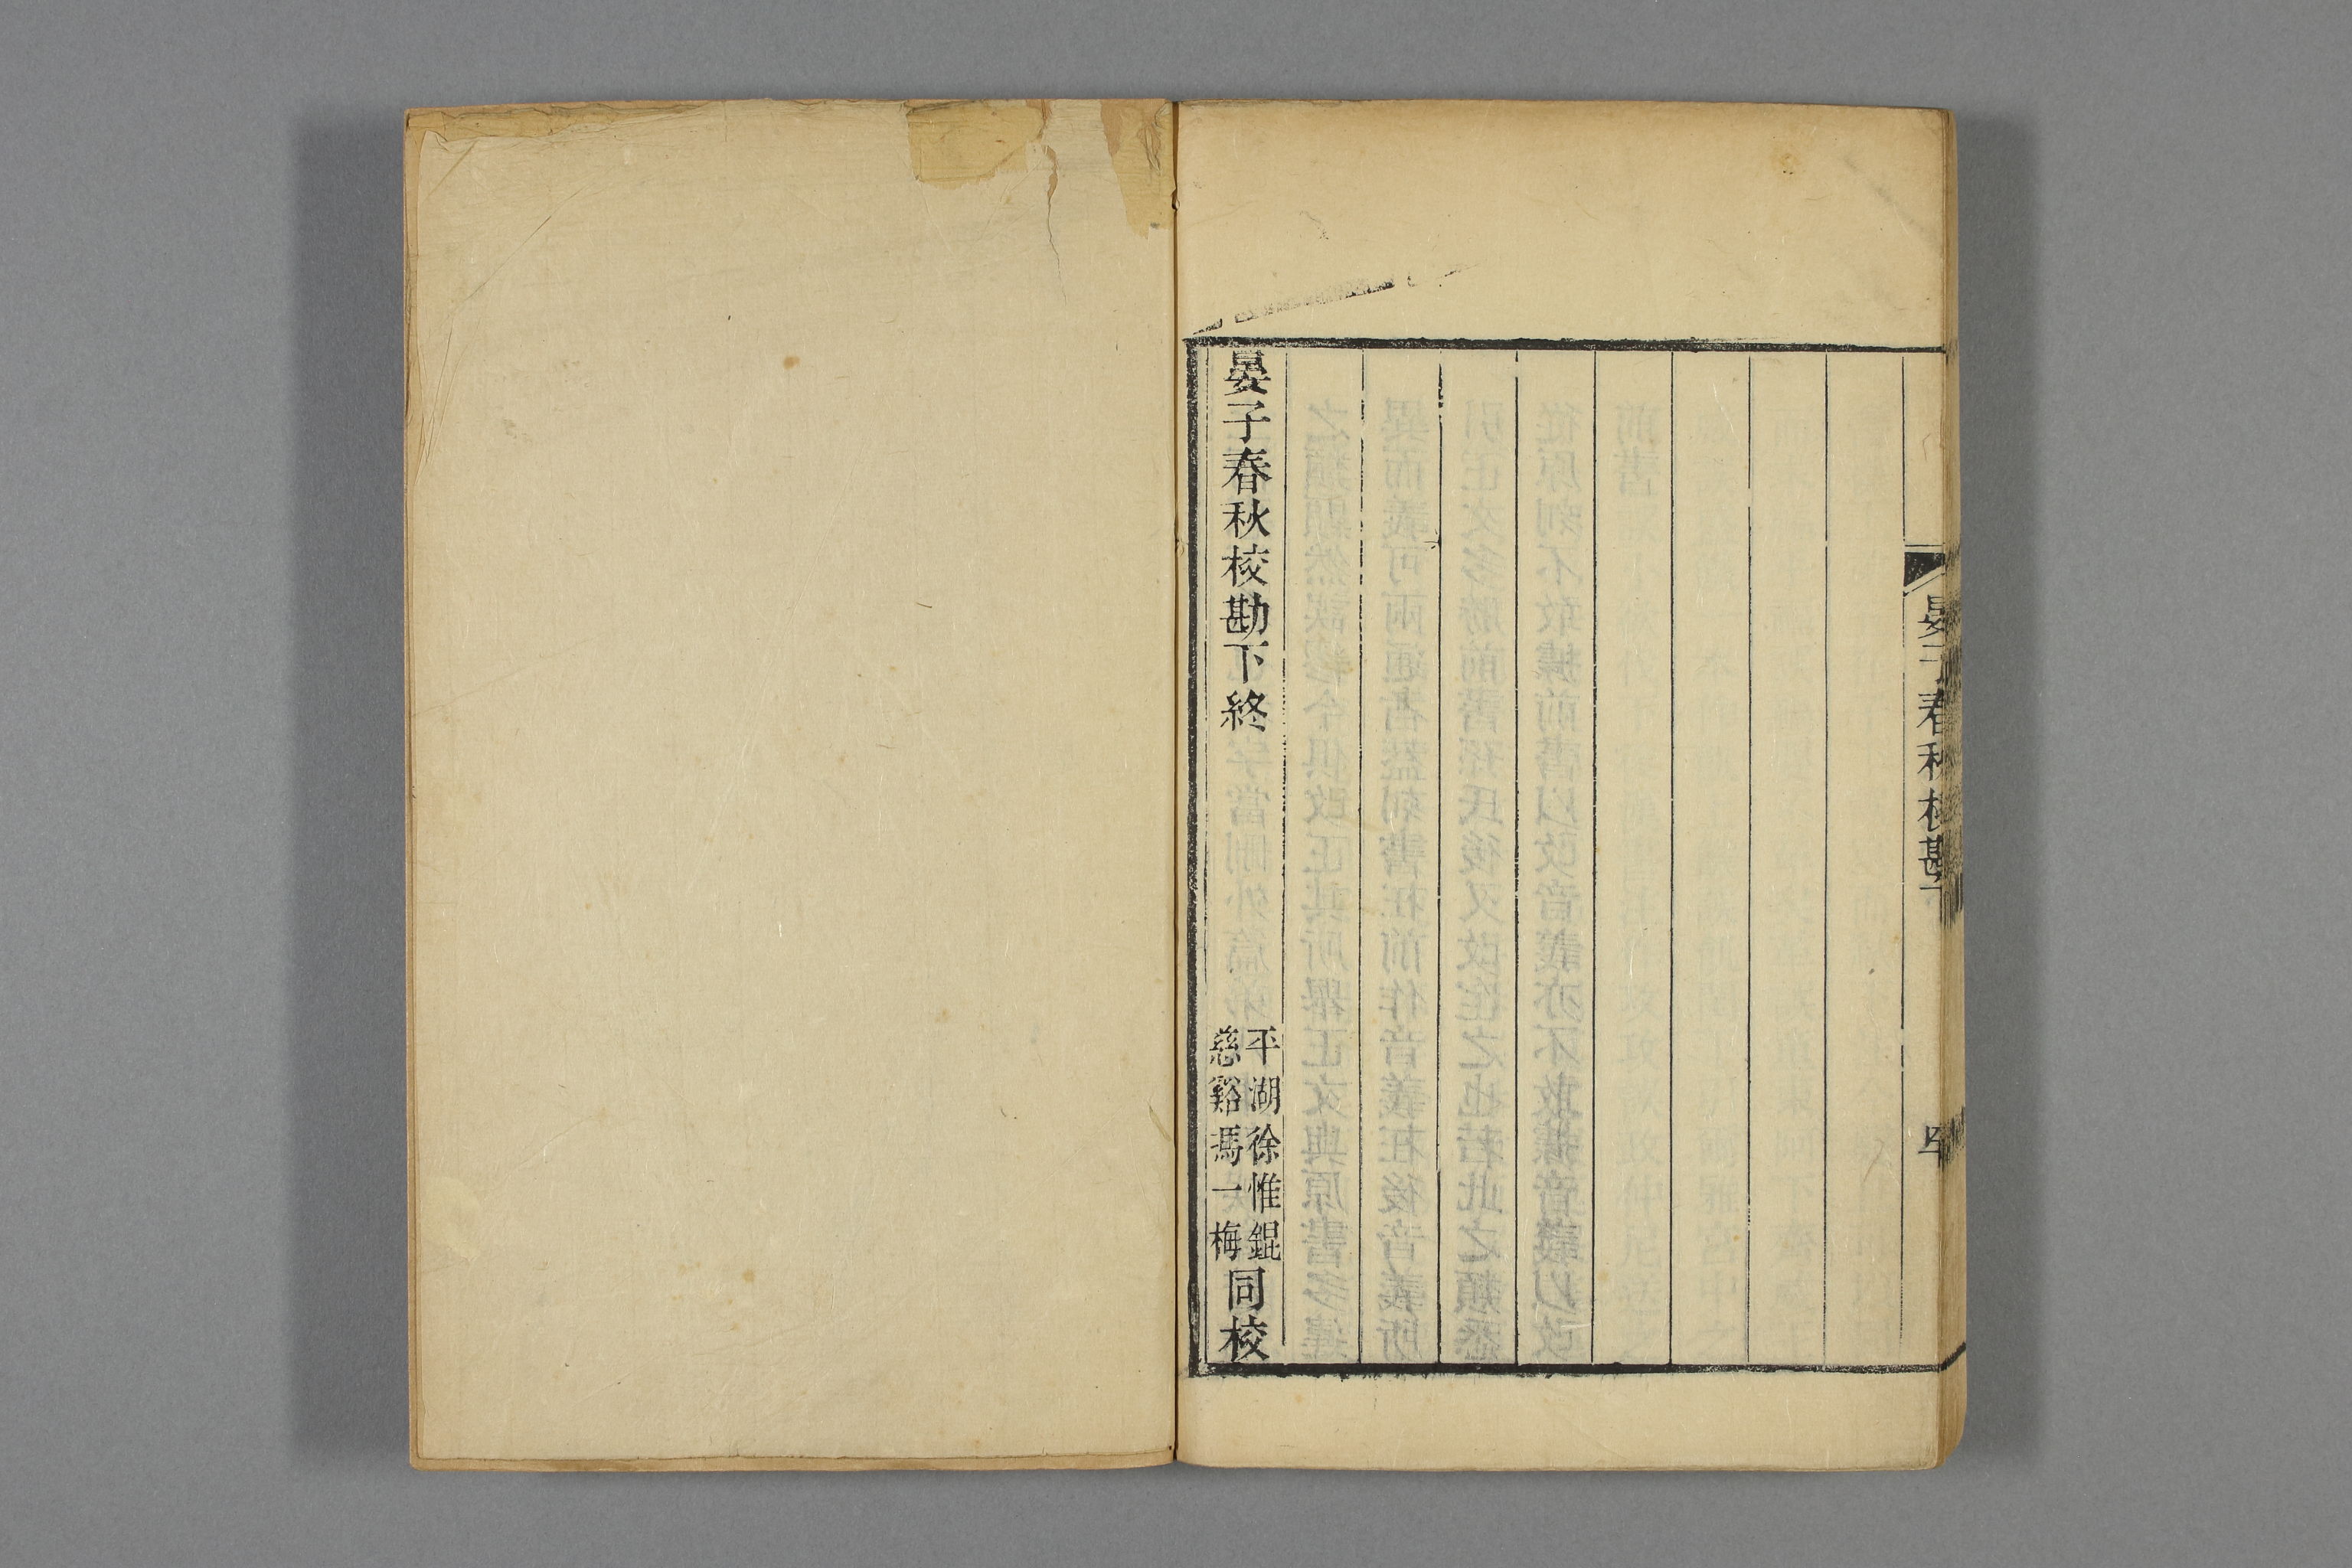 晏子春秋校勘下
晏子春秋校勘下終
平湖徐惟錕
慈谿馮一梅
同校